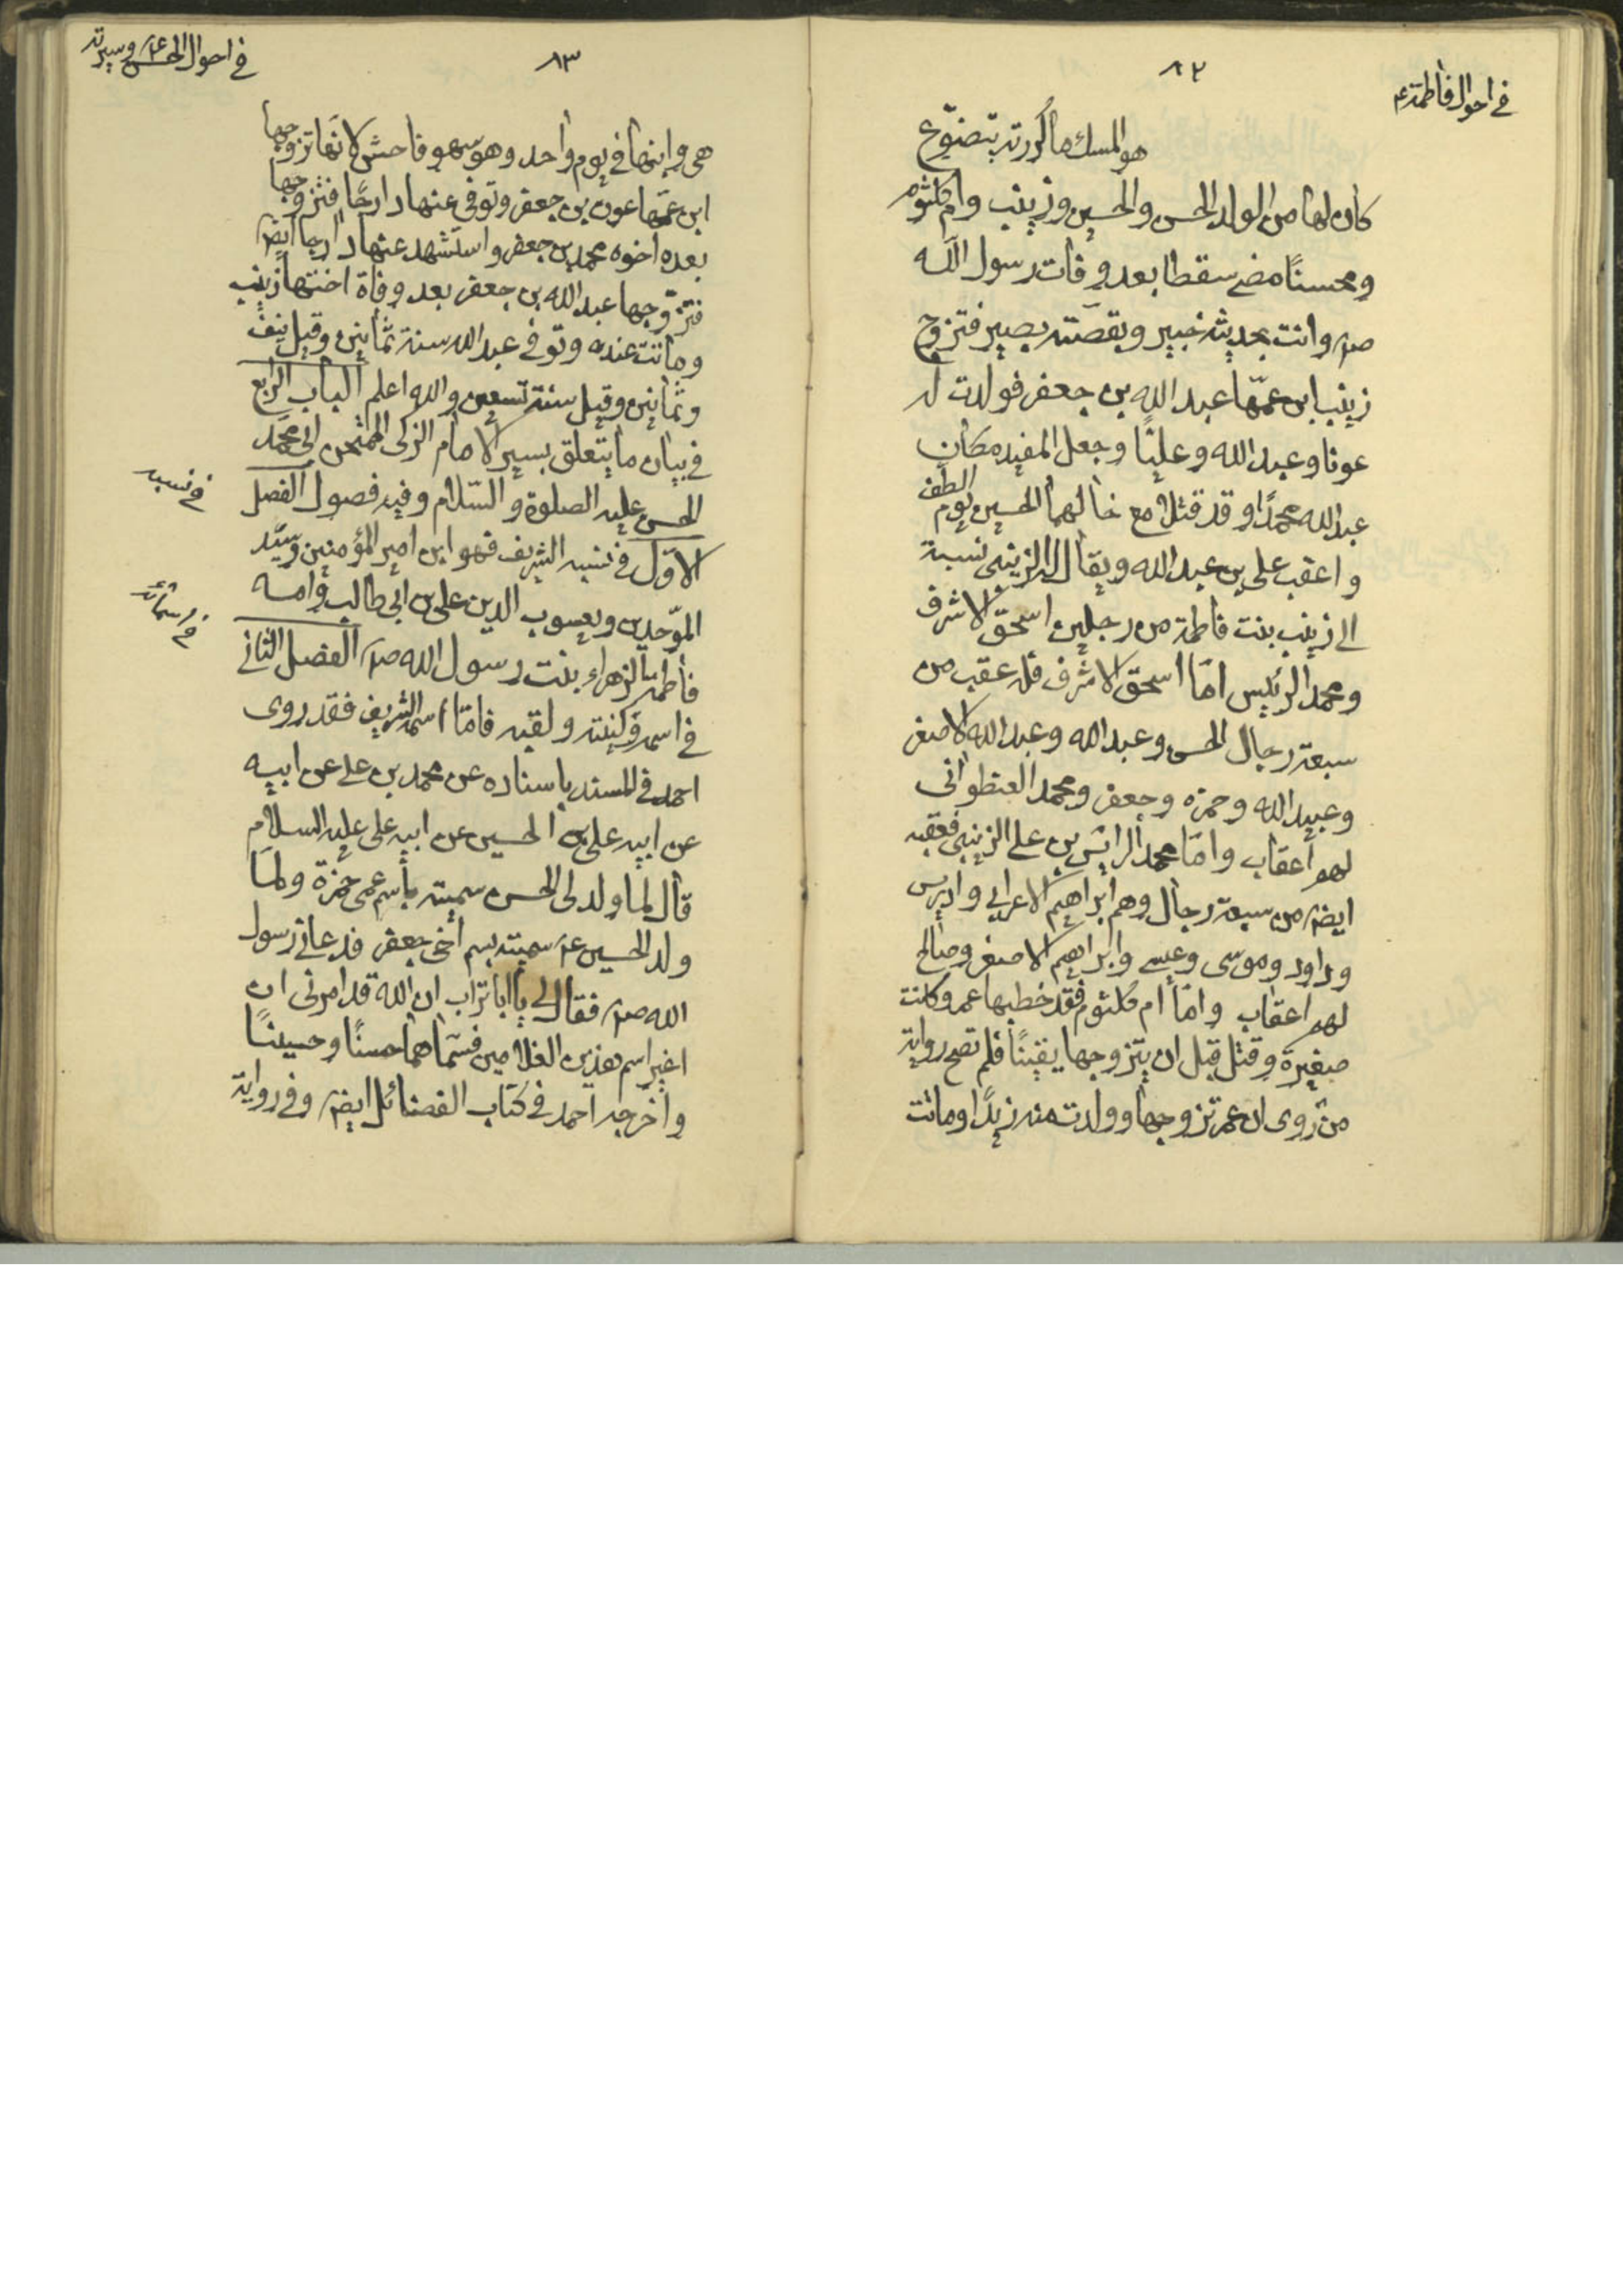 في احوال فاطمة ع
٨٢
هو المسك ما كررته يتضوّع
كان لها من الولد الحسن والحسين وزينب وام كلثوم
ومحسنًا مضى سقطا بعد وفات رسول الله
صم وانت بحديثه خبير وبقصته بصير فتزوج
زينب ابن عمّها عبد الله بن جعفر فولدت له
عونا وعبد الله وعليًا وجعل المفيد مكان
عبد الله محمدًا وقد قتلا مع خالهما الحسين يوم الطف
واعقب علي بن عبد الله ويقال له الزينبي نسبة
الى زينب بنت فاطمة من رجلين اسحق الاشرف
ومحمد الرئيس امّا اسحق الاشرف فله عقب من
سبعة رجال الحسن وعبد الله وعبد الله الاصغر
وعبيد الله وحمزه وجعفر ومحمد العنطواني
لهم أعقاب وامّا محمد الرائس بن علي الزينبي فعقبه
ايضم من سبعة رجال وهم ابراهيم الاعرابي وادريس
وداود وموسى وعيسى وابراهيم الاصغر وصالح
لهم اعقاب وامّا ام كلثوم فقد خطبها عمر وكانت
صغيرة وقتل قبل ان يتزوجها يقينًا فلم تصح رواية
من روى ان عمر تزوجها وولدت منه زيدًا وماتت
في احوال الحسن ع وسيرته
٨٣
هي وابنها في يوم واحد وهو سهو فاحش لانّها تزوجها
ابن عمّها عون بن جعفر وتوفى عنها دارجًا فتزوجها
بعده اخوه محمد بن جعفر واستشهد عنها دارجا ايضم
فتزوّجها عبد الله بن جعفر بعد وفاة اختها زينب
وماتت عنده وتوفى عبد الله سنة ثمانين وقيل نيف
وثمانين وقيل سنة تسعين والله اعلم الباب الرابع
في بيان ما يتعلق بسير الامام الزكى الممتحن ابى محمد
الحسن عليه الصلوة والسّلام وفيه فصول الفصل
في نسبه
الاوّل في نسبه الشريف فهو ابن امير المؤمنين وسيّد
الموّحدين ويعسوب الدين علي بن ابى طالب وامه
في اسمائه
فاطمة الزهراء بنت رسول الله صم الفصل الثاني
في اسمه وكنيته ولقبه فامّا اسمه الشريف فقد روى
احمد في المسند باسناده عن محمد بن علي عن ابيه
عن ابيه علي بن الحسين عن ابيه على عليه السلام
قال لما ولد لى الحسن سميته بأسم عمى حمزة ولمّا
ولد الحسين ع سميته بسم أخى جعفر فدعانى رسول
الله صم فقال لي يا ابا تراب ان الله قد امرنى ان
اغير اسم هذين الغلامين فسّماهما حسنًا وحسينًا
واخرجه احمد في كتاب الفضائل ايضم وفى رواية